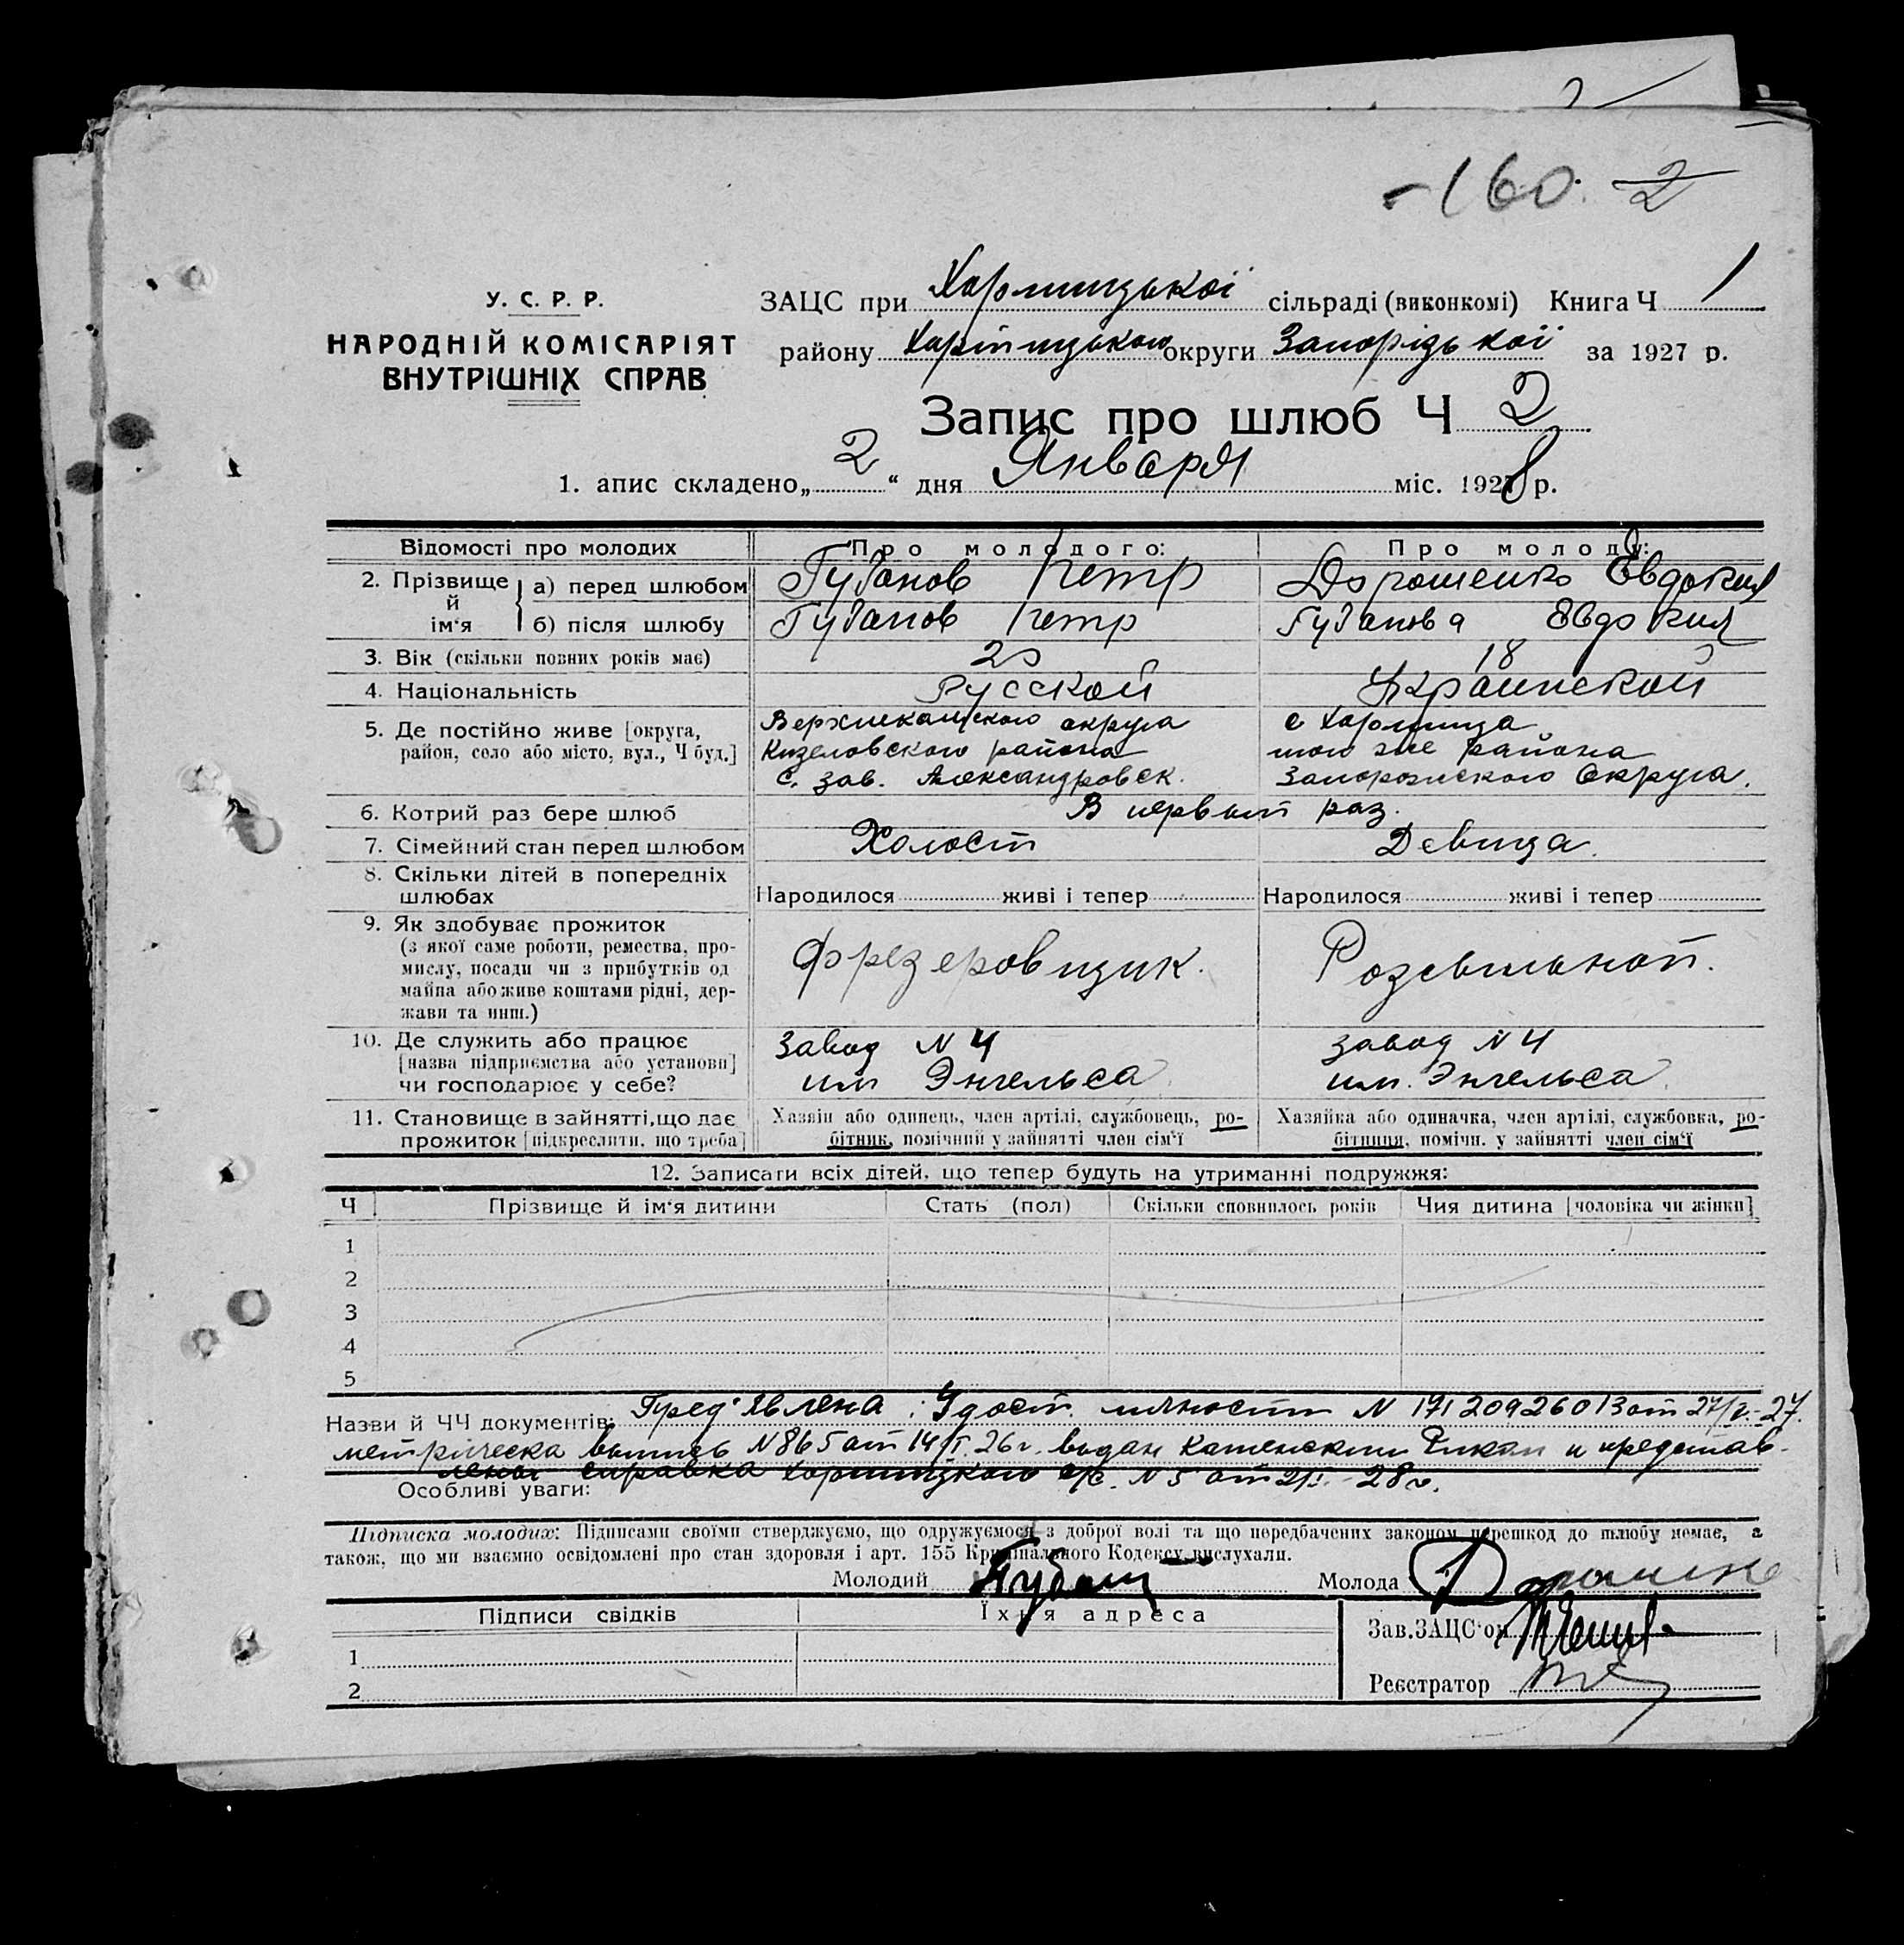 -160. 2
У. С. Р. Р.
НАРОДНІЙ КОМІСАРІЯТ
ВНУТРІШНІХ СПРАВ
ЗАЦС при Хортицької сільраді (виконкомі) Книга Ч 1
району Хортицького округи Запорізької за 1927 р.
Запис про шлюб Ч 2
1. апис складено „ 2 “ дня Января міс. 1928 р.
Відомості про молодих Про молодого: Про молоду:
2. Прізвище й ім‘я
а) перед шлюбом Губанов Петр Дорошенко Евдокия
б) після шлюбу Губанов Петр Губанова Евдокия
3. Вік (скільки повних років має) 20 18
4. Національність Русской Украинской
5. Де постійно живе [округа,
район, село або місто, вул., Ч буд.]
Верхнекамского округа
Кизеловского района
с. зав. Александровск.
с Хортица
того же района
Запорожского Округа.
6. Котрий раз бере шлюб В первый раз.
7. Сімейний стан перед шлюбом Холост Девица.
8. Скільки дітей в попередніх
шлюбах Народилося живі і тепер Народилося живі і тепер
9. Як здобуває прожиток
(з якої саме роботи, ремества, про-
мислу, посади чи з прибутків од
майна або живе коштами рідні, дер-
жави та инш.)
Фрезеровщик.
10. Де служить або працює
[назва підприємства або установи]
чи господарює у себе?
Завод N 4
им Энгельса
завод N 4
им. Энгельса
11. Становище в зайнятті, що дає
прожиток [підкреслити, що треба]
Хазяїн або одинець, член артілі, службовець, ро-
бітник, помічний у зайнятті член сім‘ї
Хазяйка або одиначка, член артілі, службовка, ро-
бітниця, помічн. у зайнятті член сім‘ї
12. Записати всіх дітей, що тепер будуть на утриманні подружжя:
Ч Прізвище й ім‘я дитини Стать (пол) Скільки сповнилось років Чия дитина [чоловіка чи жінки]
1
2
3
4
5
Назви й ЧЧ документів: Пред‘явлена: Удост. личности N
метрическа выпись N 865 от 14/I. 26 г. выдан Каменским и представ-
лены справка Хортицкого с/с. N 5 от 2/I - 28 г.
Особливі уваги:
Підписка молодих: Підписами своїми стверджуємо, що одружуємося з доброї волі та що передбачених законом перешкод до шлюбу немає, а
також, що ми взаємно освідомлені про стан здоровля і арт. 155 Кримінального Кодексу вислухали.
Молодий Губанов Молода
Підписи свідків Їхня адреса
Зав. ЗАЦС‘ом
1
2
Реєстратор